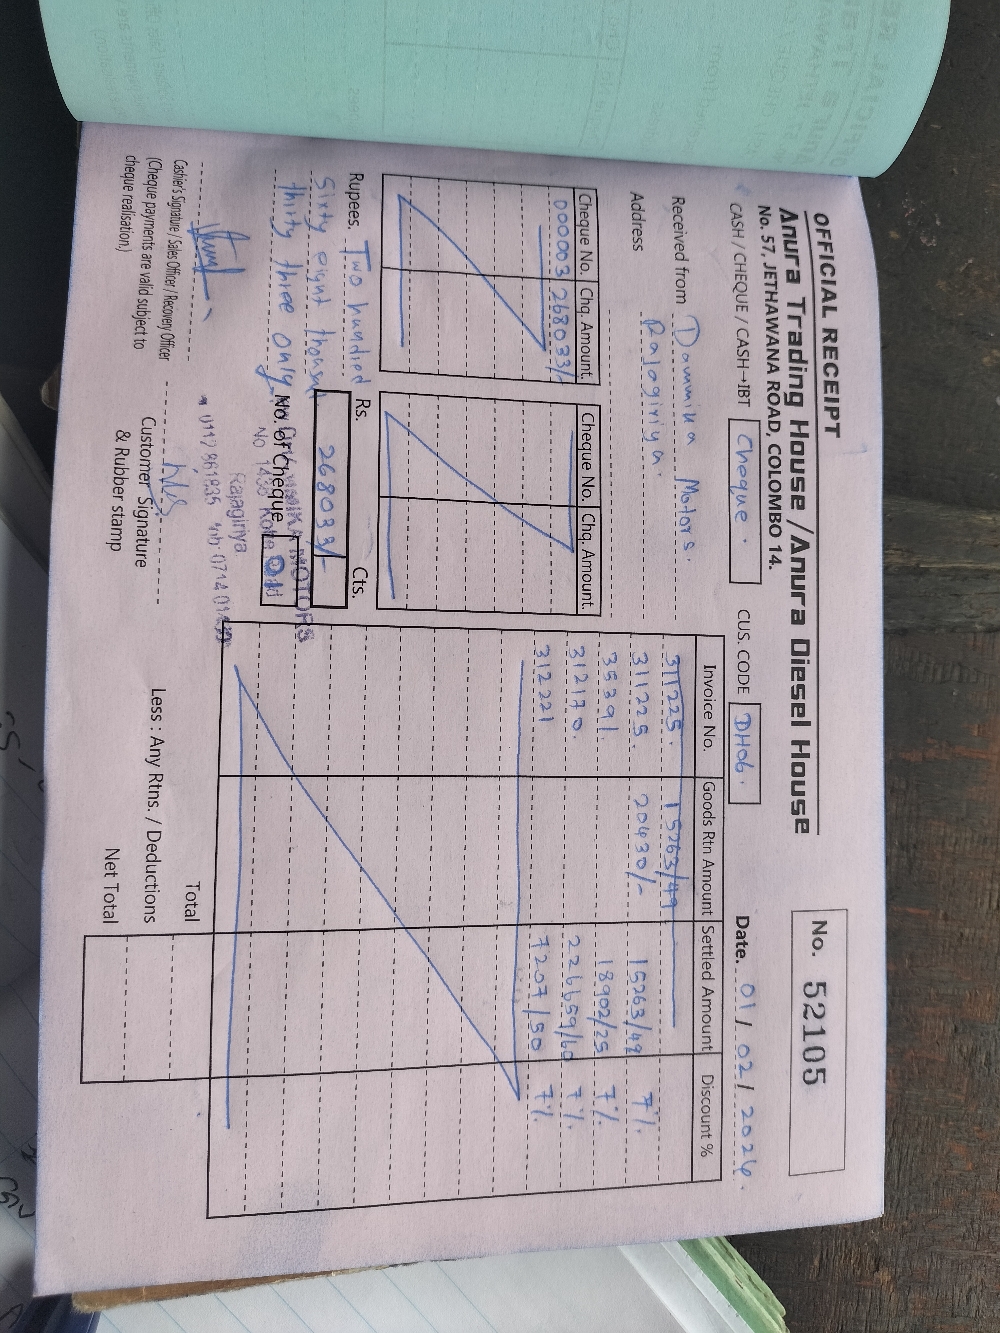 OFFICIAL RECEIPT
No. 52105
Anura Trading House /Anura Diesel House
No. 57, JETHAWANA ROAD, COLOMBO 14.
CASH / CHEQUE / CASH→IBT Cheque. CUS. CODE DH06. Date. 01 / 02 / 2024.
Received from Dammika Motors.
Address
Cheque No. Chq. Amount.
000003 268033/-
Cheque No. Chq. Amount.
Invoice No. Goods Rtn Amount Settled Amount Discount %
311225. 15263/49
311225. 20430/- 15263/49 7%.
35391. 18902/25 7%
312170. 226659/60 7%
312221 7207/50 7%.
Rupees. Two hundred
sixty eight thousand
thirty three only
Rs. Cts.
268033/-
No. of Cheque
MOTORS
Rajagiriya
Total
Less : Any Rtns. / Deductions
Net Total
Cashier's Signature / Sales Officer / Recovery Officer
(Cheque payments are valid subject to
cheque realisation.)
Customer Signature
& Rubber stamp